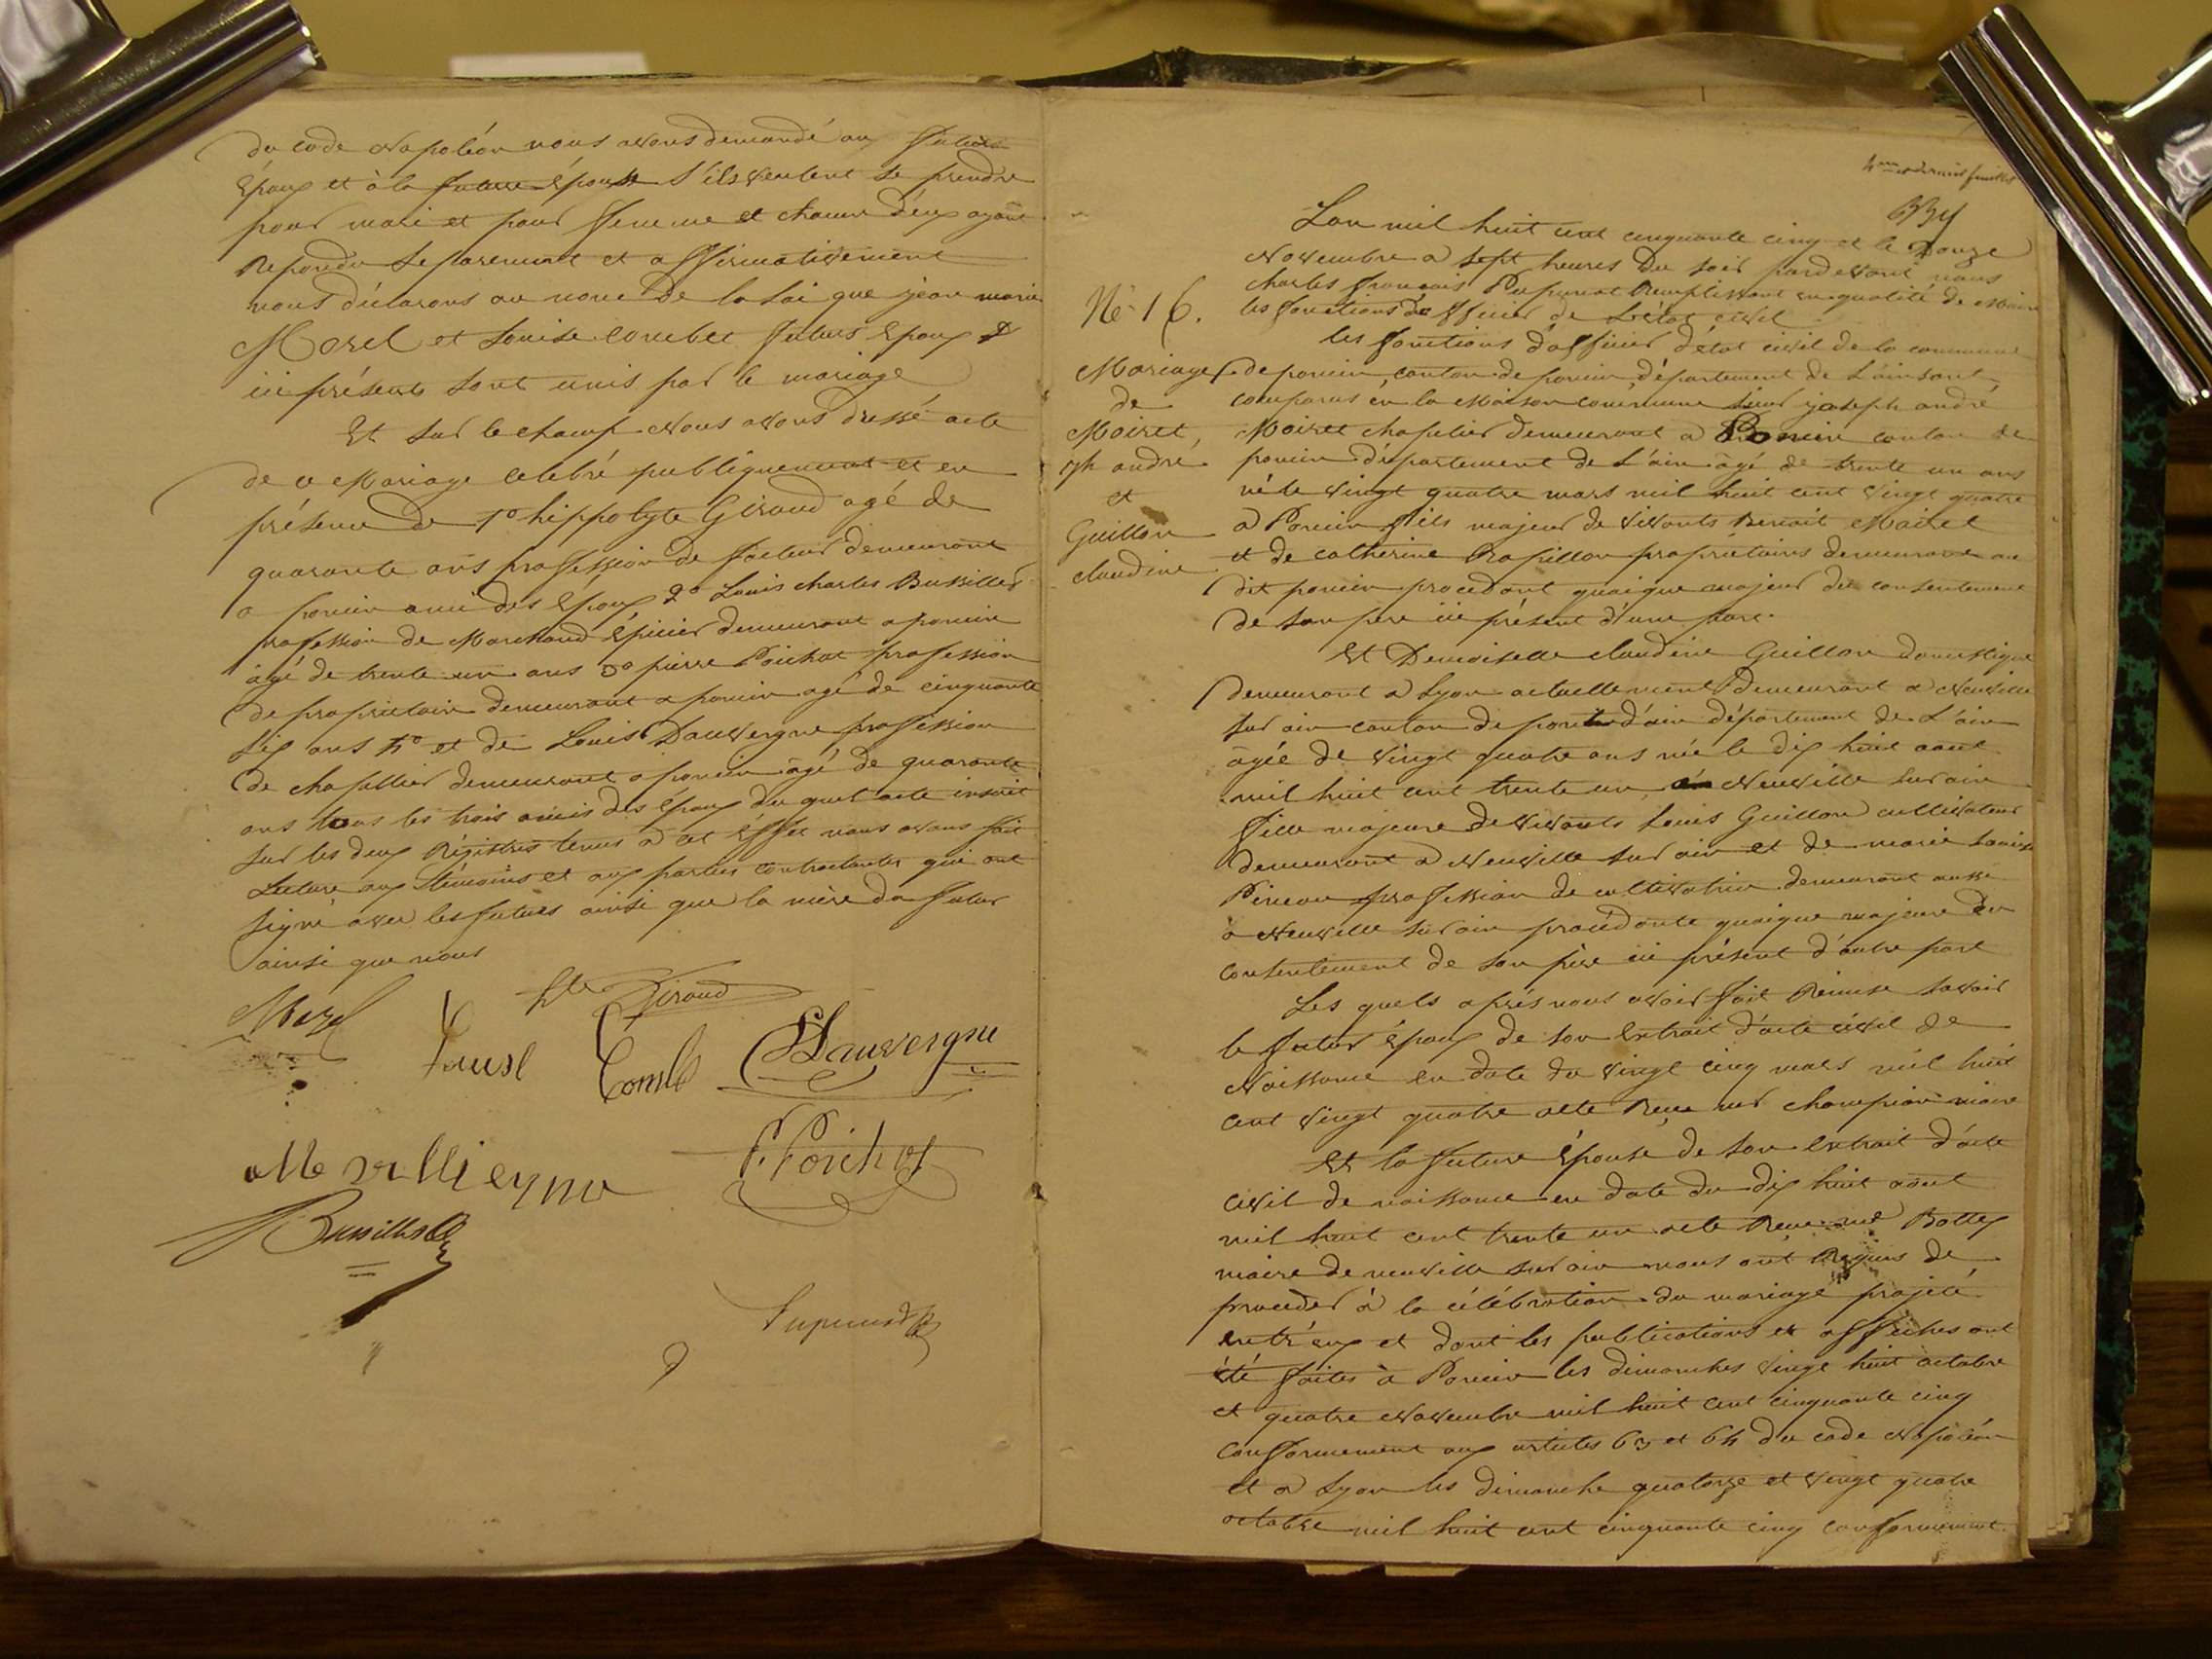 du code Napoléon nous avons demandé au futur
Epoux et à la future Epouse S'ils veulent se prendre
pour mari et pour femme et chacun d'eux ayant
Repondu Separement et affirmativement
nous déclarons au nom de la loi que jean marie
Morel et Louise Combet futurs Epoux
ici présents sont unis par le mariage
Et sur le champ Nous avons dressé acte
de ce Mariage celebré publiquement et en
présence de 1° hippolyte Giraud agé de
quarante ans profession de facteur demeurant
a poncin ami des Epoux 2° Louis charles Bussillet
profession de Marchand Epicier demeurant a poncin
âgé de trente un ans 3° pierre Poichot profession
de propriétaire demeurant a poncin agé de cinquante
six ans 4° et de Louis Dauvergne profession
de chapellier demeurant a poncin âgé de quarante
ans tous les trois amis des époux du quel acte inscrit
sur les deux Régistres tenus à cet éffet nous avons fait
Lecture aux témoins et aux parties contractantes qui ont
signé avec les futurs ainsi que la mère du futur
ainsi que nous
Morel hte Giraud
Louise Combet Dauvergne
P. Poichot
Bussillet
Pupunat
4me et dernier feuillet
L'an mil huit cent cinquante cinq et le Douze
Novembre a sept heures Du soir pardevant nous
charles françois Pupunat Remplissant en qualité de Maire
les fonctions de officier de L'état civil
les fonctions d'officier d'état civil de la commune
de poncin, canton de poncin, département de L'ain sont
comparus en la Maison commune sieur joseph andré
Moiret chapelier demeurant a Poncin canton de
poncin département de L'ain âgé de trente un ans
né le vingt quatre mars mil huit cent vingt quatre
a Poncin fils majeur de vivants Benoit Moiret
et de catherine Papillon propriétaires demeurant au
dit poncin procedant quoique majeur du consentement
de son pere ici présent d'une part.
Nº 16.
Mariage
de
Moiret,
jph andré
et
Guillon
claudine
Et Demoiselle claudine Guillon domestique
demeurant a Lyon actuellement demeurant a Neuville
sur ain canton de pont d'ain département de L'ain
âgée de vingt quatre ans née le dix huit aout
mil huit cent trente un, a Neuville sur ain
fille majeure de vivants Louis Guillon cultivateur
demeurant a Neuville sur ain et de marie Louise
profession de cultivatrice demeurant aussi
a Neuville sur ain procédante quoique majeure du
contentement de son père ici présent d'autre part
Les quels aprés nous avoir fait Remise savoir
le futur époux de son Extrait d'acte civil de
Naissance en date du vingt cinq mars mil huit
cent vingt quatre acte Reçu mr champion maire
Et la future Épouse de son Extrait d'acte
civil de naissance en date du dix huit aout
mil huit cent trente un acte Reçu mr Bottex
maire de neuville sur ain nous ont Requis de
proceder à la célébration du mariage projeté
entr'eux et dont les publications et affiches ont
été faites à Poncin les dimanches vingt huit octobre
et quatre Novembre mil huit cent cinquante cinq
conformement aux articles 63 et 64 du code Napoléon
et a Lyon les dimanche quatorze et vingt quatre
octobre mil huit cent cinquante cinq conformement